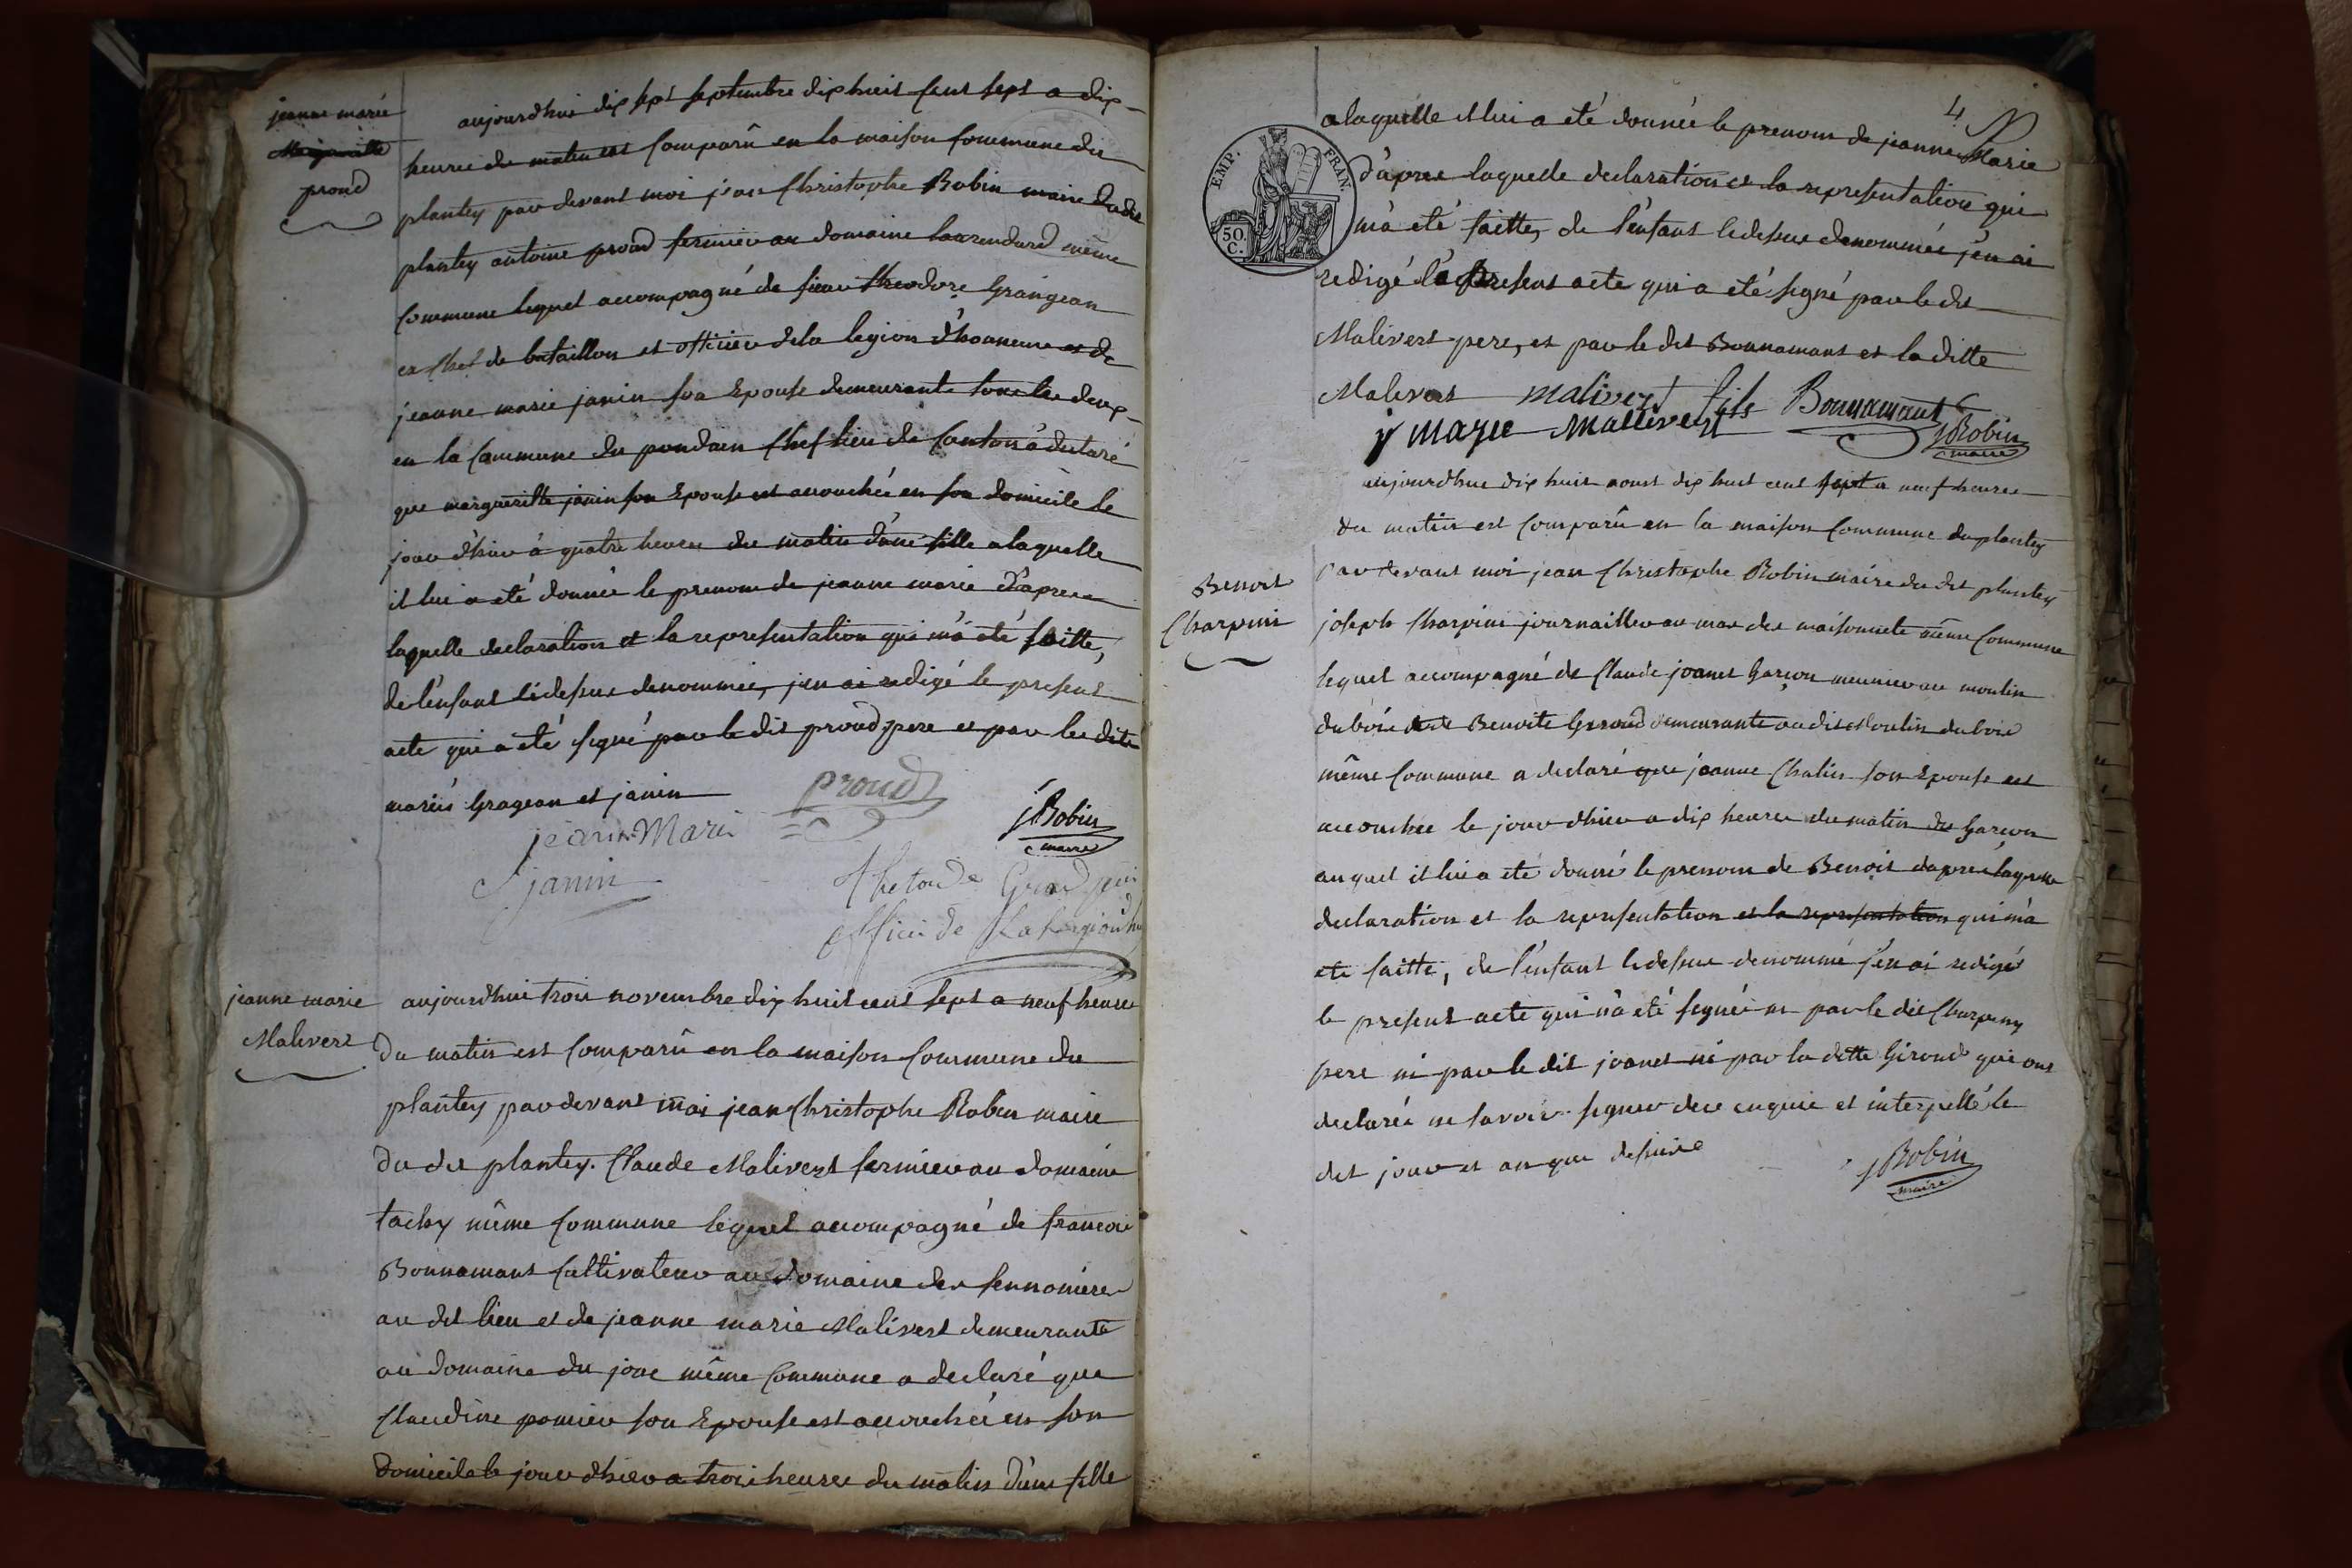 jeanne marie
prond
aujourdhui dix sept septembre dix huit cent sept a dix
heures du matin est comparû en la maison commune du
plantey par devant moi jean christophe Robin maire du dit
plantey antoine prond fermier au domaine même
commune lequel accompagné de sieur theodore Grangean
ex chef de bataillon et officier de la legion d'honneur et de
jeanne marie janin son Epouse demeurante tous les deux
en la commune du pondain chef lieu de canton a declaré
que margueritte janin son Epouse est accouchée en son domicile le
jour d'hier à quatre heures du matin d'une fille a laquelle
il lui a été donnée le prenom de jeanne marie d'apres
laquelle declaration et la representation qui m'a été faitte,
de l'enfant cidessus denommée, jen ai redigé le present
acte qui a été signé par le dit prond pere et par les dits
mariés Grageon et janin
prond
jean Mari
janin
J Robin
maire
officie de
jeanne marie
Malivert
aujourdhui trois novembre dix huit cent sept a neuf heures
du matin est comparû en la maison commune du
plantey par devant moi jean christophe Robin maire
du dit plantey. Claude Malivert fermier au domaine
tachy même commune lequel accompagné de francois
Bonnamant cultivateur au domaine des
au dit lieu et de jeanne marie Malivert demeurante
au domaine du jone même commune a declaré que
Claudine pomier son Epouse est accouchée en son
domicile le jour dhier a trois heures du matin d'une fille
4
a laquelle il lui a été donnée le prenom de jeanne Marie
d'apres laquelle declaration et la representation qui
m'a eté faitte, de l'enfant cidessus denommée j'en ai
redigé le present acte qui a été signé par le dit
Malivert pere, et par le dit Bonnamant et la ditte
Malivert
malivert fils Bonnamant
j marie Mallivert
J Robin
maire
EMP. FRAN.
50 C.
Benoit
Charpini
aujourdhui dix huit aoust dix huit cent sept a neuf heures
du matin est comparû en la maison commune du plantey
par devant moi jean christophe Robin maire du dit plantey
joseph Charpini journaillier au mas des maisonnete même commune
lequel accompagné de Claude joanet Garçon meunier au moulin
du bois et de Benoite Giroud demeurante au dit Moulin du bois
même commune a declaré que jeanne Chatin son Epouse est
accouchee le jour dhier a dix heures du matin du Garcon
auquel il lui a été donné le prenom de Benoit daprés laquelle
declaration et la representation et la representation qui m'a
ete faitte, de l'enfant cidessus denommé j'en ai redigé
le present acte qui n'a été signée ni par le dit Charpiny
pere ni par le dit joanet ni par la ditte Giroud qui ont
declarée ne savoir signer de ce enquis et interpellé le
dit jour et an que dessus
J Robin
maire